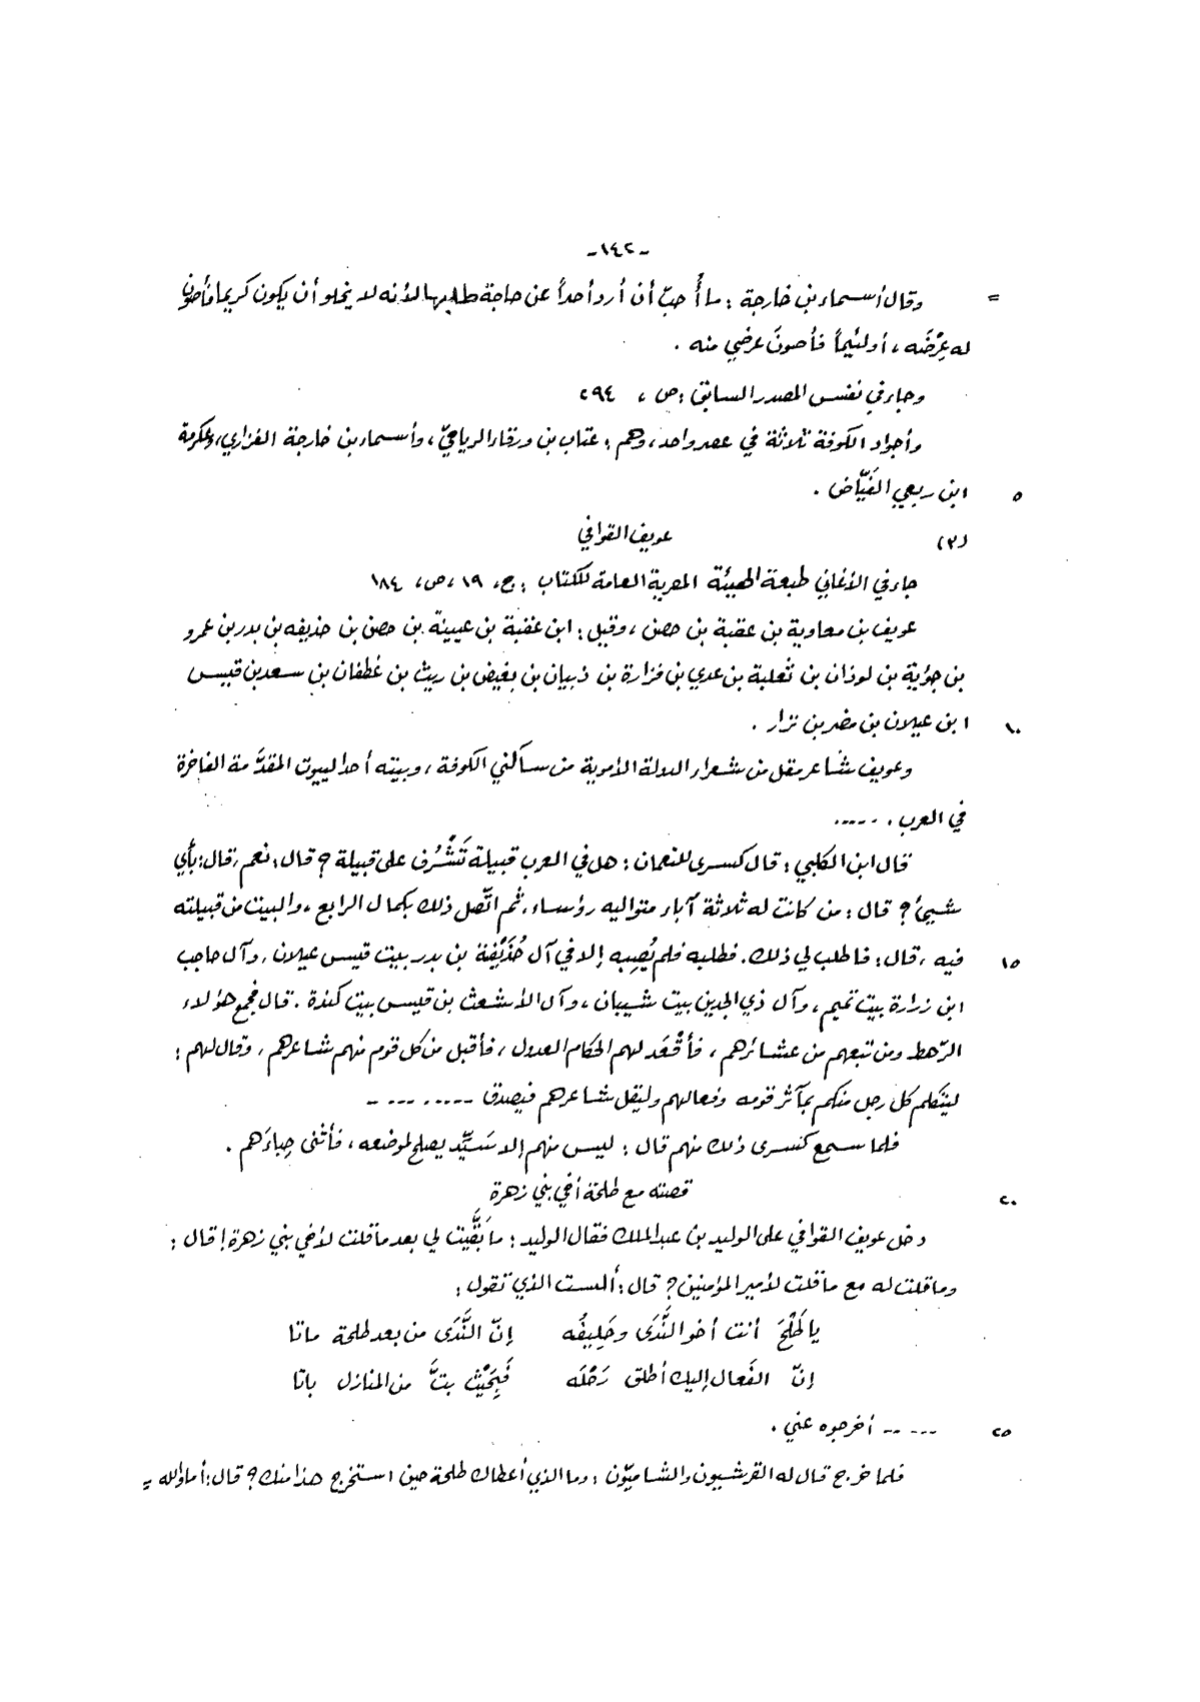 -١٤٢-
= وقال أسماء بن خارجة : ما أُحبّ أن أرد أحداً عن حاجة طلبها لأنه لا يخلو أن يكون كريما فأصون
له عِرْضَه ، أو لئيماً فأصونَ عرضي منه .
وجاء في نفس المصدر السابق :ص ، ٢٩٤
وأجواد الكوفة ثلاثة في عصر واحد ، وهم : عتاب بن ورقاء الرياحيّ ، وأسماء بن خارجة الفزاري ، وعكرمة
٥ ابن ربعي الفَيّاض .
(٢) عويف القوافي
جاء في الأغاني طبعة الهيئة المصرية العامة للكتاب :ج، ١٩ ،ص، ١٨٤
عويف بن معاوية بن عقبة بن حصن ، وقيل : ابن عقبة بن عيينة بن حصن بن حذيفه بن بدر بن عمرو
بن جؤية بن لوذان بن ثعلبة بن عدي بن فزارة بن ذبيان بن بغيض بن ريث بن غطفان بن سعد بن قيس
١٠ ابن عيلان بن مضر بن نزار .
وعويف شاعر مقل من شعراء الدولة الأموية من ساكني الكوفة ، وبيته أحد البيوت المقدَّمة الفاخرة
في العرب . .....
قال ابن الكلبي : قال كسرى للنعمان : هل في العرب قبيلة تَشْرُف على قبيلة ؟ قال : نعم ، قال : بأي
شيئ ؟ قال : من كانت له ثلاثة آباء متواليه رؤساء ، ثم اتّصل ذلك بكمال الرابع ، والبيت من قبيلته
١٥ فيه ، قال : فاطلب لي ذلك . فطلبه فلم يُصِبه إلا في آل حُذَيْفة بن بدر بيت قيس عيلان ، وآل حاجب
ابن زرارة بيت تميم ، وآل ذي الجدين بيت شيبان ، وآل الأشعث بن قيس بيت كندة . قال فجمع هؤلاء
الرّهط ومن تبعهم من عشائرهم ، فأقْعَد لهم الحكام العدول ، فأقبل من كل قوم منهم شاعرهم ، وقال لهم :
ليتكلم كل رجل منكم بمآثر قومه وفعالهم وليقل شاعرهم فيصدق ..... ... .
فلما سمع كسرى ذلك منهم قال : ليس منهم إلا سَيّد يصلح لموضعه ، فأثنى حِباءَهم .
٢٠ قصته مع طلحة أخي بني زهرة
دخل عويف القوافي على الوليد بن عبد الملك فقال الوليد : ما بَقَّيت لي بعد ما قلت لأخي بني زهرة ! قال :
وما قلت له مع ما قلت لأمير المؤمنين ؟ قال : ألست الذي تقول :
يا طَلْحَ أنت أخو النَّدَى وحَلِيفُه إنّ النَّدَى من بعد طلحة ماتا
إنّ الفَعال إليك أطلق رَحْلَه فَبِحَيْثُ بتَّ من المنازل باتا
٢٥ ... .. أخرجوه عني .
فلما خرج قال له القرشيون والشاميّون : وما الذي أعطاك طلحة حين استخرج هذا منك ؟ قال : أما والله =